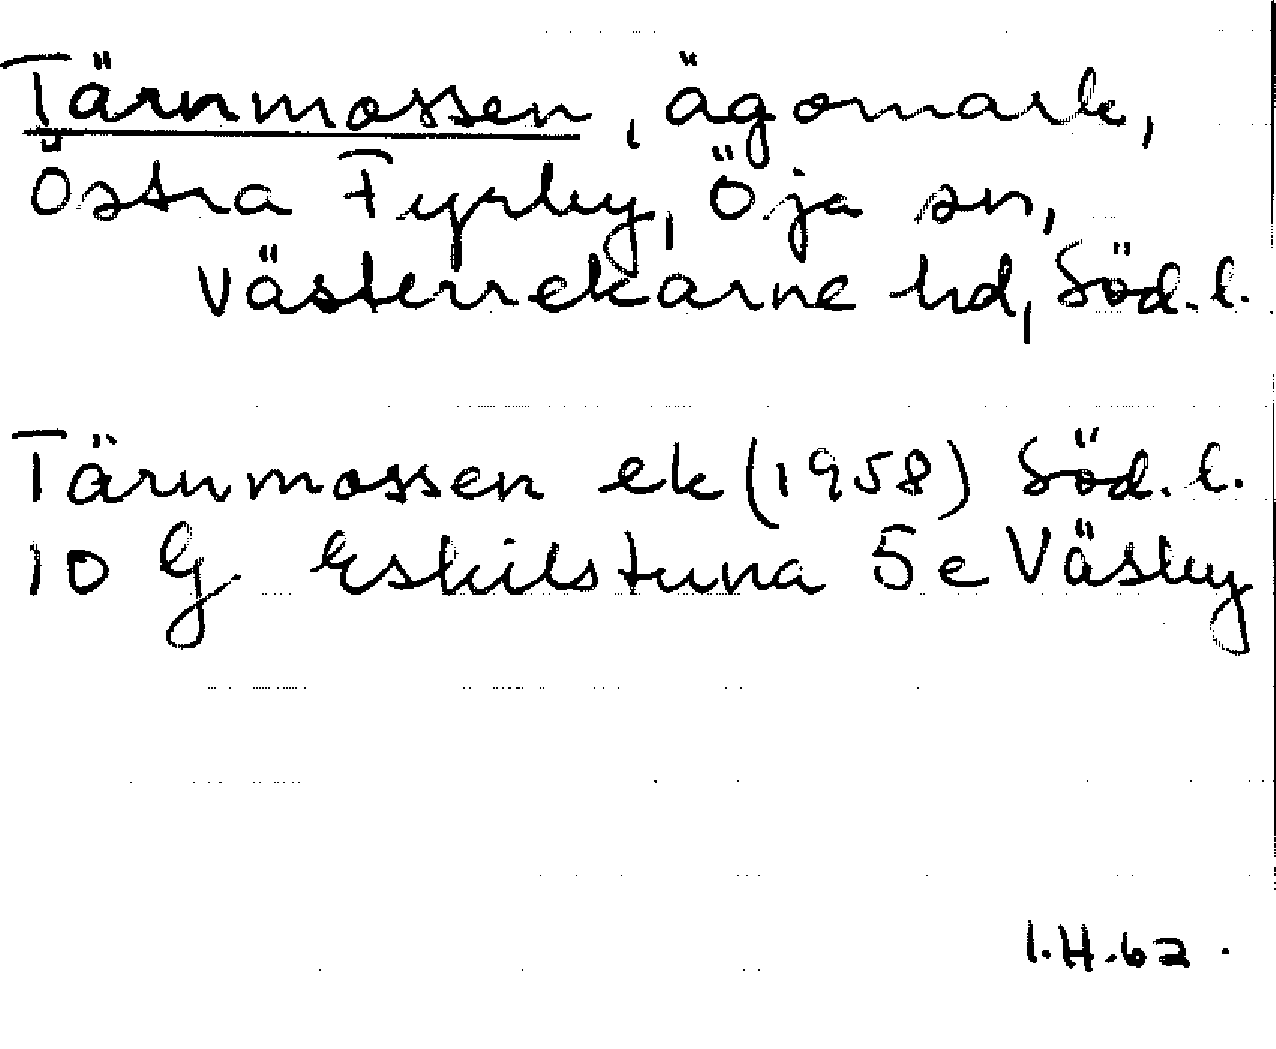 Tärnmossen, ägomark,
Östra Fyrby, Öja sn,
Västerrekarne hd, Söd. l.
Tärnmossen ek (1958) Söd. l.
10 G Eskilstuna 5e Väsby
I.H.62.